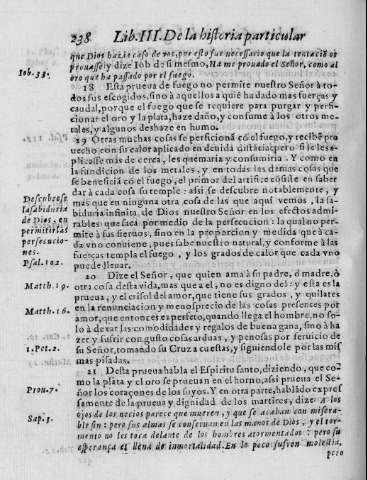 238 Lib. III. De la historia particular
que Dios hazia caso de vos, por esto fue necessario que la tentaciõ os
prouasse: y dize Iob de si mesmo, Ha me prouado el Señor, como al
Iob. 33.
oro que ha passado por el fuego.
18 Esta prueua de fuego no permite nuestro Señor à to-
dos sus escogidos, sino à aquellos a quiẽ ha dado mas fuerças y
caudal, porque el fuego que se requiere para purgar y perfi-
cionar el oro y la plata, haze daño, y consume à los otros me-
tales, y algunos deshaze en humo.
19 Otras muchas cosas se perficionã cõ el fuego, y recibẽ pro
uecho con su calor aplicado en deuida distãcia; pero si se les a-
plicasse mas de cerca, les quemaria y consumiria. Y como en
la fundicion de los metales, y en todas las damas cosas que
se beneficiã cõ el fuego, el primor del artifice cõsiste en saber
dar à cada cosa su temple: assi se descubre notablemente, y
Descubrese
la sabiduria
de Dios, en
permitir las
persecucio-
nes.
mas que en ninguna otra cosa de las que aqui vemos, la sa-
biduria infinita de Dios nuestro Señor en los efectos admi-
rables que saca por medio de la persecucion: la qual no per-
mite à sus sieruos, sino en la proporcion y medida que à ca-
da vno conuiene, pues sabe nuestro natural, y conforme à las
Psal. 102.
fuerças templa el fuego, y los grados de calor que cada vno
puede lleuar.
20 Dize el Señor, que quien ama à su padre, ò madre, ò
Matth. 19.
otra cosa desta vida, mas que a el, no es digno del: y esta es la
prueua, y el crisol del amor, que tiene sus grados, y quilates
Matth. 16.
en la renunciacion y menosprecio de las cosas presentes por
amor, que entonces es perfeto, quando llega el hombre, no so-
lo à dexar las comodidades y regalos de buena gana, sino à ha
zer y sufrir con gusto cosas arduas, y penosas por seruicio de
1. Pet. 2.
su Señor, tomando su Cruz a cuestas, y siguiendole por las mis
mas pisadas.
21 Desta prueua habla el Espiritu santo, diziendo, que co-
mo la plata y el oro se prueuan en el horno, assi prueua el Se-
Prou. 7.
ñor los coraçones de los suyos. Y en otra parte, hablãdo expres
samente de la prueua y dignidad de los martires, dize: A los
Sap. 3.
ojos de los necios parece que mueren, y que se acaban con misera-
ble fin: pero sus almas se conseruan en las manos de Dios, y el tor-
mento no les toca delante de los hombres atormentados: pero su
esperança es llena de inmortalidad. En lo poco sufren molestia,
pero